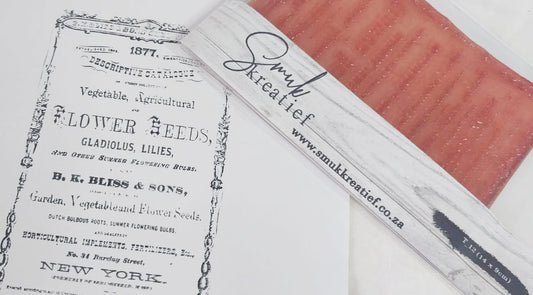 1877.
DESCRIPTIVE CATALOGUE
Vegetable, Agricultural
FLOWER SEEDS,
GLADIOLUS, LILIES,
AND OTHER SUMMER FLOWERING BULBS.
B. K. BLISS & SONS,
Garden, Vegetable and Flower Seeds.
DUTCH BULBOUS ROOTS, SUMMER FLOWERING BULBS.
HORTICULTURAL IMPLEMENTS, FERTILIZERS, Etc.
No. 34 Barclay Street.
NEW YORK.
Smuk
kreatief
www.smukkreatief.co.za
T_12 (14 x 9cm)